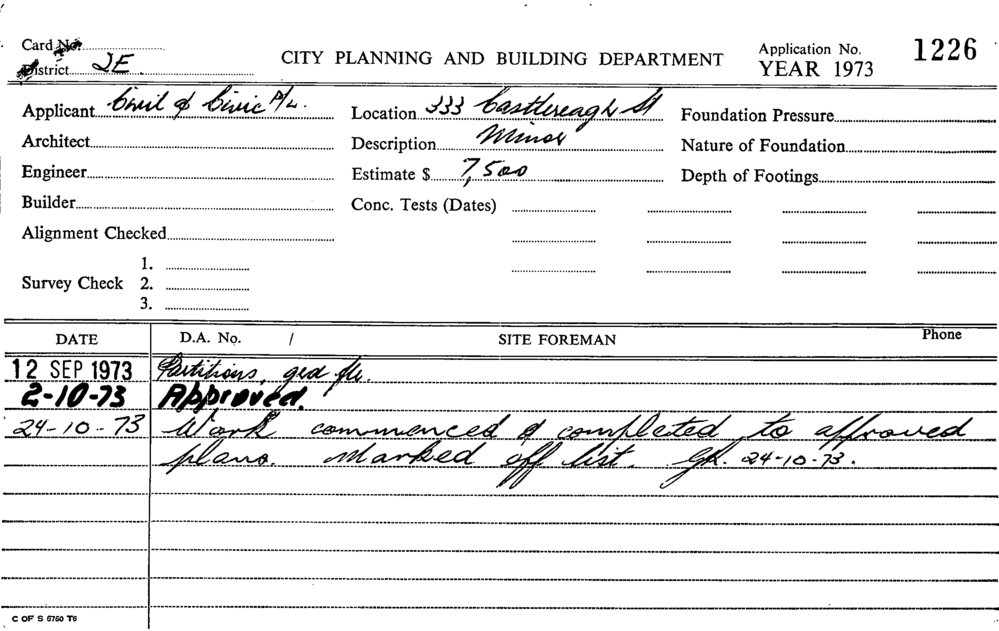 Card No.
CITY PLANNING AND BUILDING DEPARTMENT
Application No. 1226
District 2E.
YEAR 1973
Applicant Civil & Civic P/L. Location 333 Castlereagh St Foundation Pressure
Architect Description Minor Nature of Foundation
Engineer Estimate $ 7,500 Depth of Footings
Builder Conc. Tests (Dates)
Alignment Checked
1.
Survey Check 2.
3.
DATE D.A. No. / SITE FOREMAN Phone
12 SEP 1973 Partitions, grd flr.
2-10-73 Approved.
24-10-73 Work commenced & completed to approved
plans. Marked off list. 24-10-73.
C OF S 5760 T6